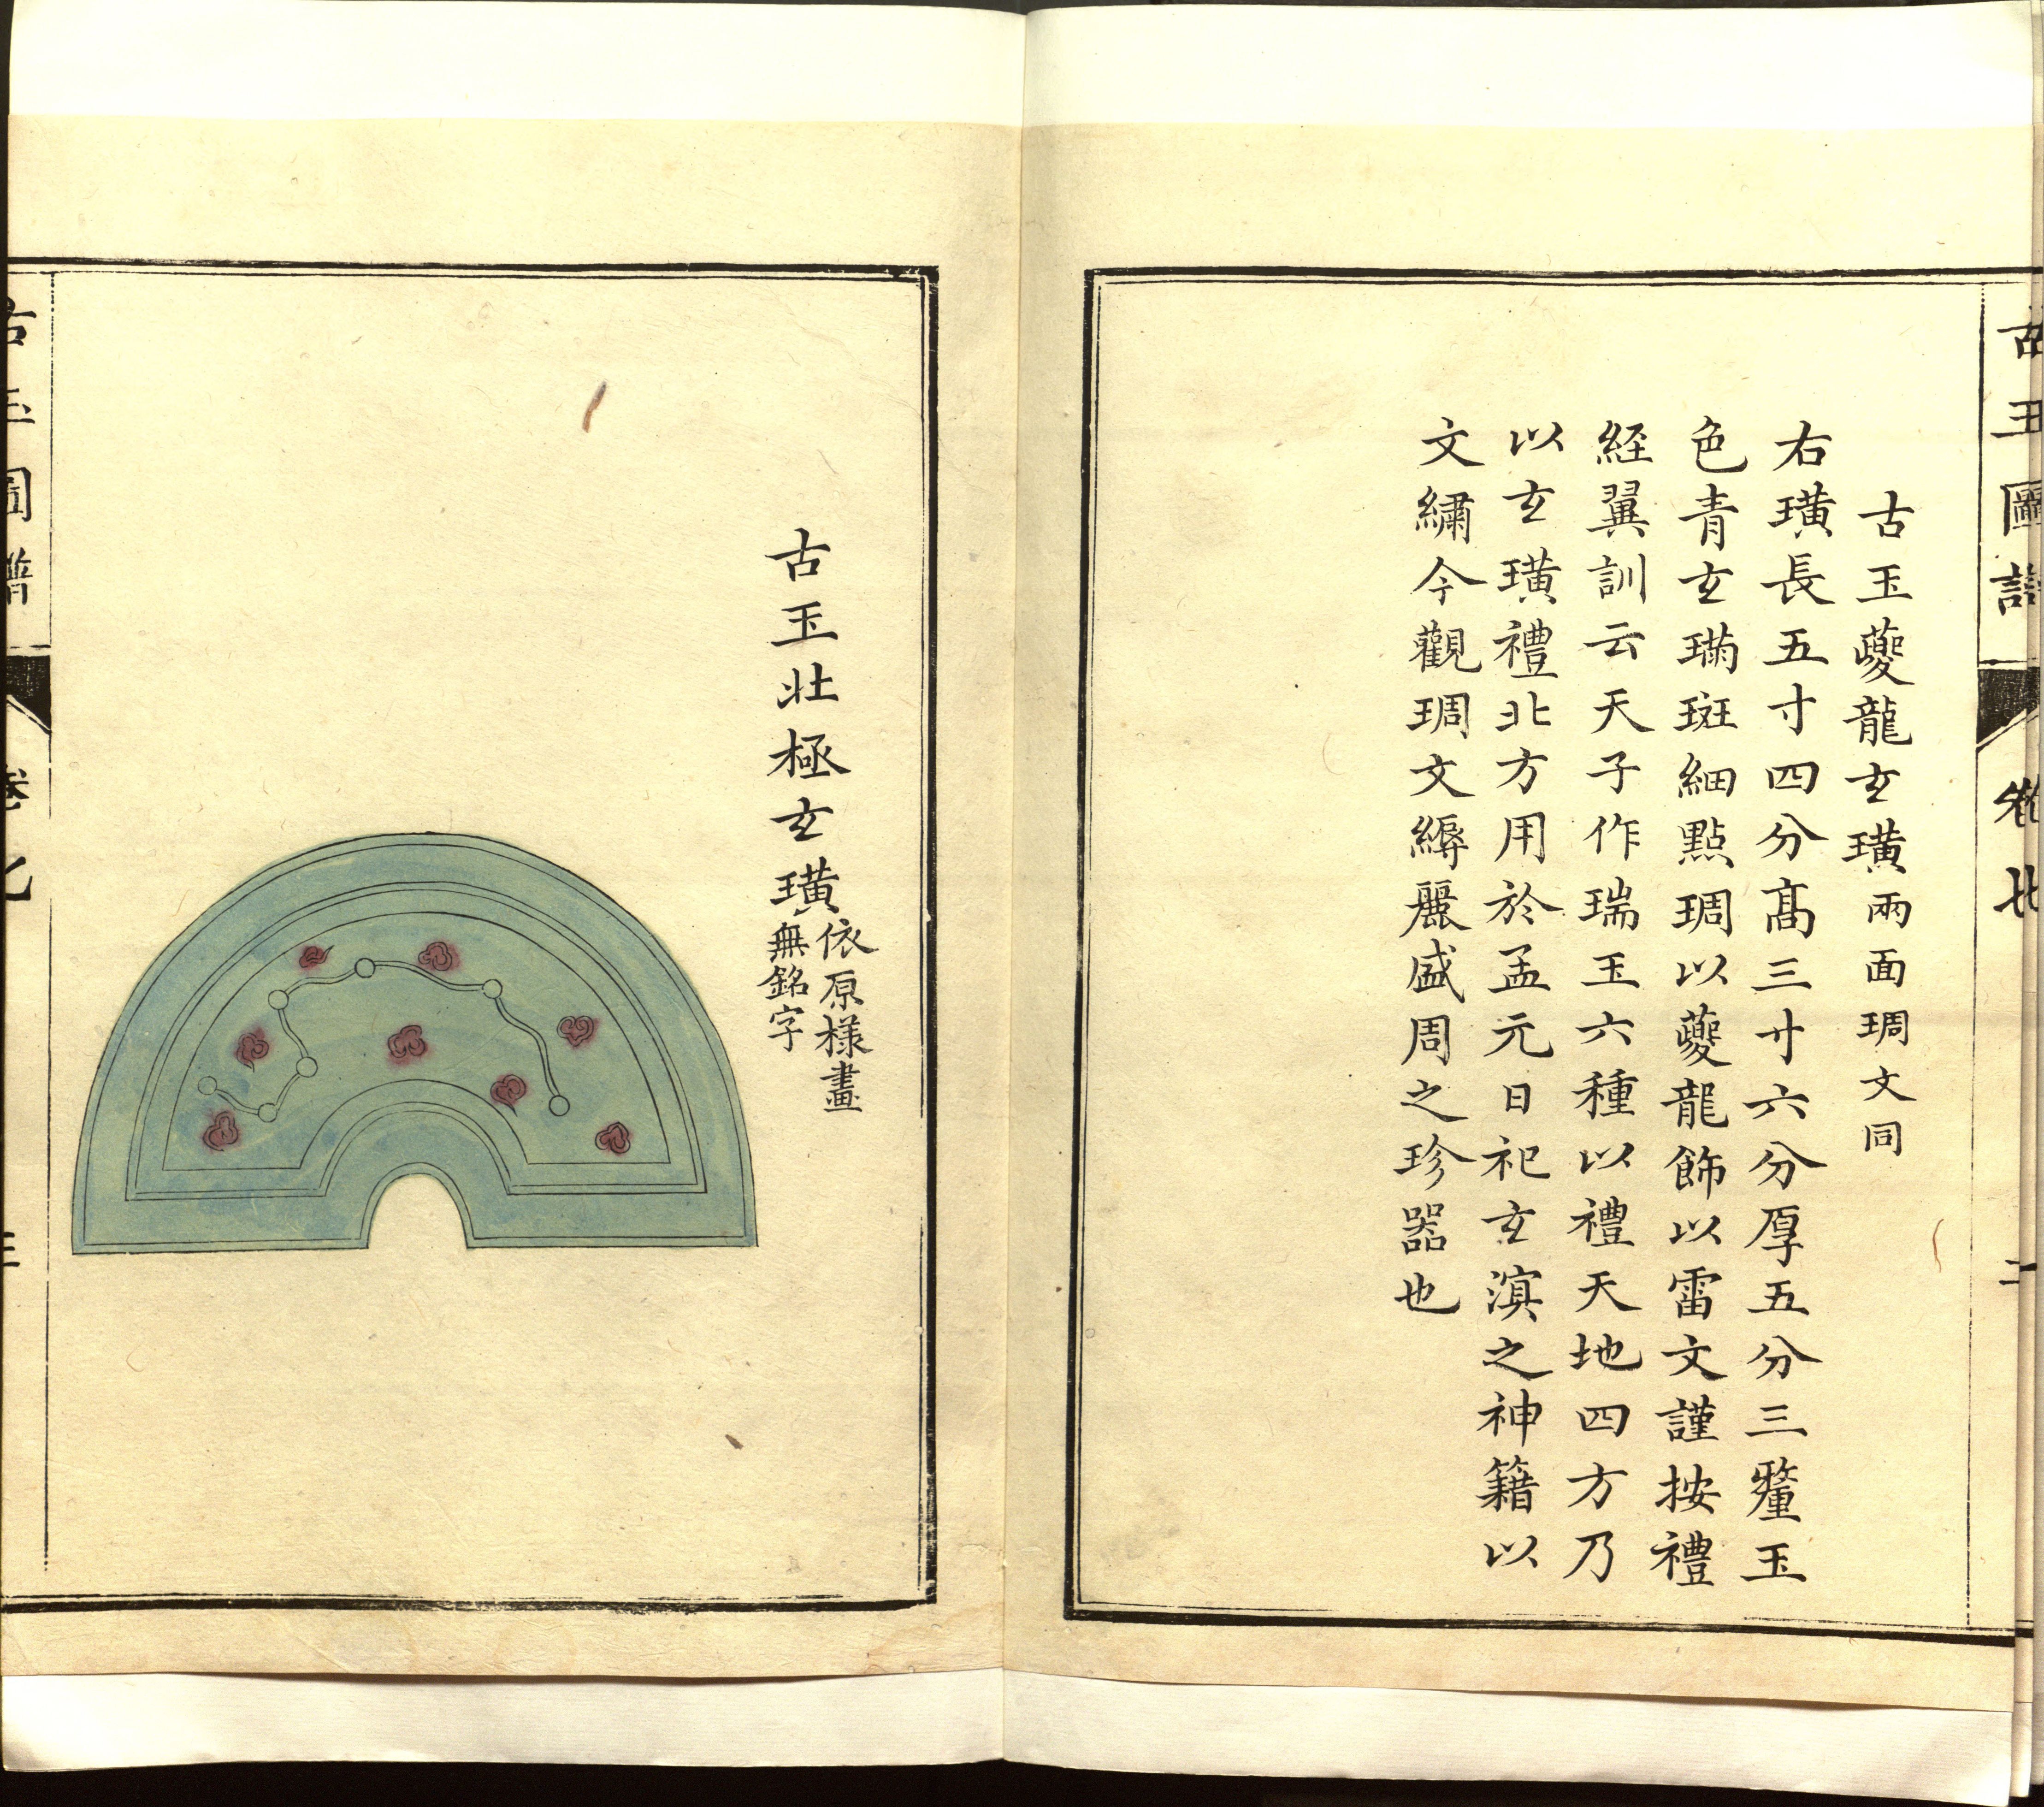 古玉圖譜 卷七 二
古玉夔龍玄璜兩面琱文同
右璜長五寸四分高三寸六分厚五分三釐玉
色青玄璊斑細點琱以夔龍飾以雷文謹按禮
経翼訓云天子作瑞玉六種以禮天地四方乃
以玄璜禮北方用於孟元日祀玄㵋之神籍以
文繡今觀琱文縟麗盛周之珍器也
古玉北極玄璜
依原様畫
無銘字
古玉圖譜 卷七 三